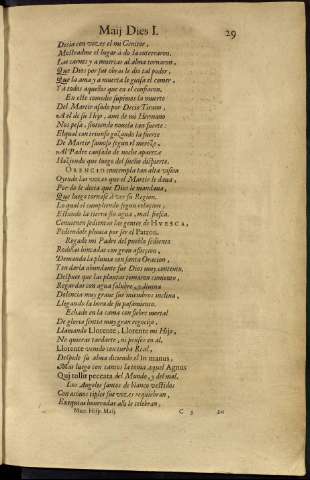 Maij Dies I. 29
Dezia con vozes el mi Genitor,
Mostradme el lugar à do la enterraron.
Las carnes ya muertas al alma tornaron,
Que Dios por sus obras le dio tal poder,
Que la ama ya muerta le guisa el comer
Y à todos aquellos que en el confiaron.
En este comedio supimos la muerte
Del Martir asado por Decio Tirano,
A el de su Hijo, ami de mi Hermano
Nos pesa, sintiendo novela tan fuerte:
El qual con triunfo gozando la suerte
De Martir famoso segun el merezio,
Al Padre cansado de noche aparece
Haziendo que luego del sueño dispierte.
ORENCIO contempla tan alta vision
Oyendo las vozes que el Martir le dava,
Por do le dezia que Dios le mandava,
Que luego tornase à ver su Region.
Lo qual el cumpliendo segun relacion,
Estando la tierra sin agua, mal fresca,
Convienen sedientas las gentes de HUESCA,
Pidiendole pluvia por ser el Patron.
Rogado mi Padre del pueblo sediento
Rodillas hincadas con gran aficcion,
Demanda la pluvia con santa Oracion,
Y en darla abundante fue Dios muy contento.
Despues que las plantas tomaron contento,
Regardas con agua salubre, divina
Dolencia muy grave sus miembros inclina,
Llegando la hora de su pasamiento.
Echado en la cama con fiebre mortal
De gloria sentia muy gran regocijo,
Llamando Llorente, Llorente mi Hijo,
No quieras tardarte, ni pensses en al,
Llorente viendo con turba Real,
Despide su alma diciendo el In manus,
Mas luego con cantos la toma aquel Agnus
Qui tollit peccata del Mundo, y del mal.
Los Angeles santos de blanco vestidos
Con acinos tiples sus vozes requiebran,
Exequias honrradas alli le celebran,
Mart. Hisp. Maij C 3